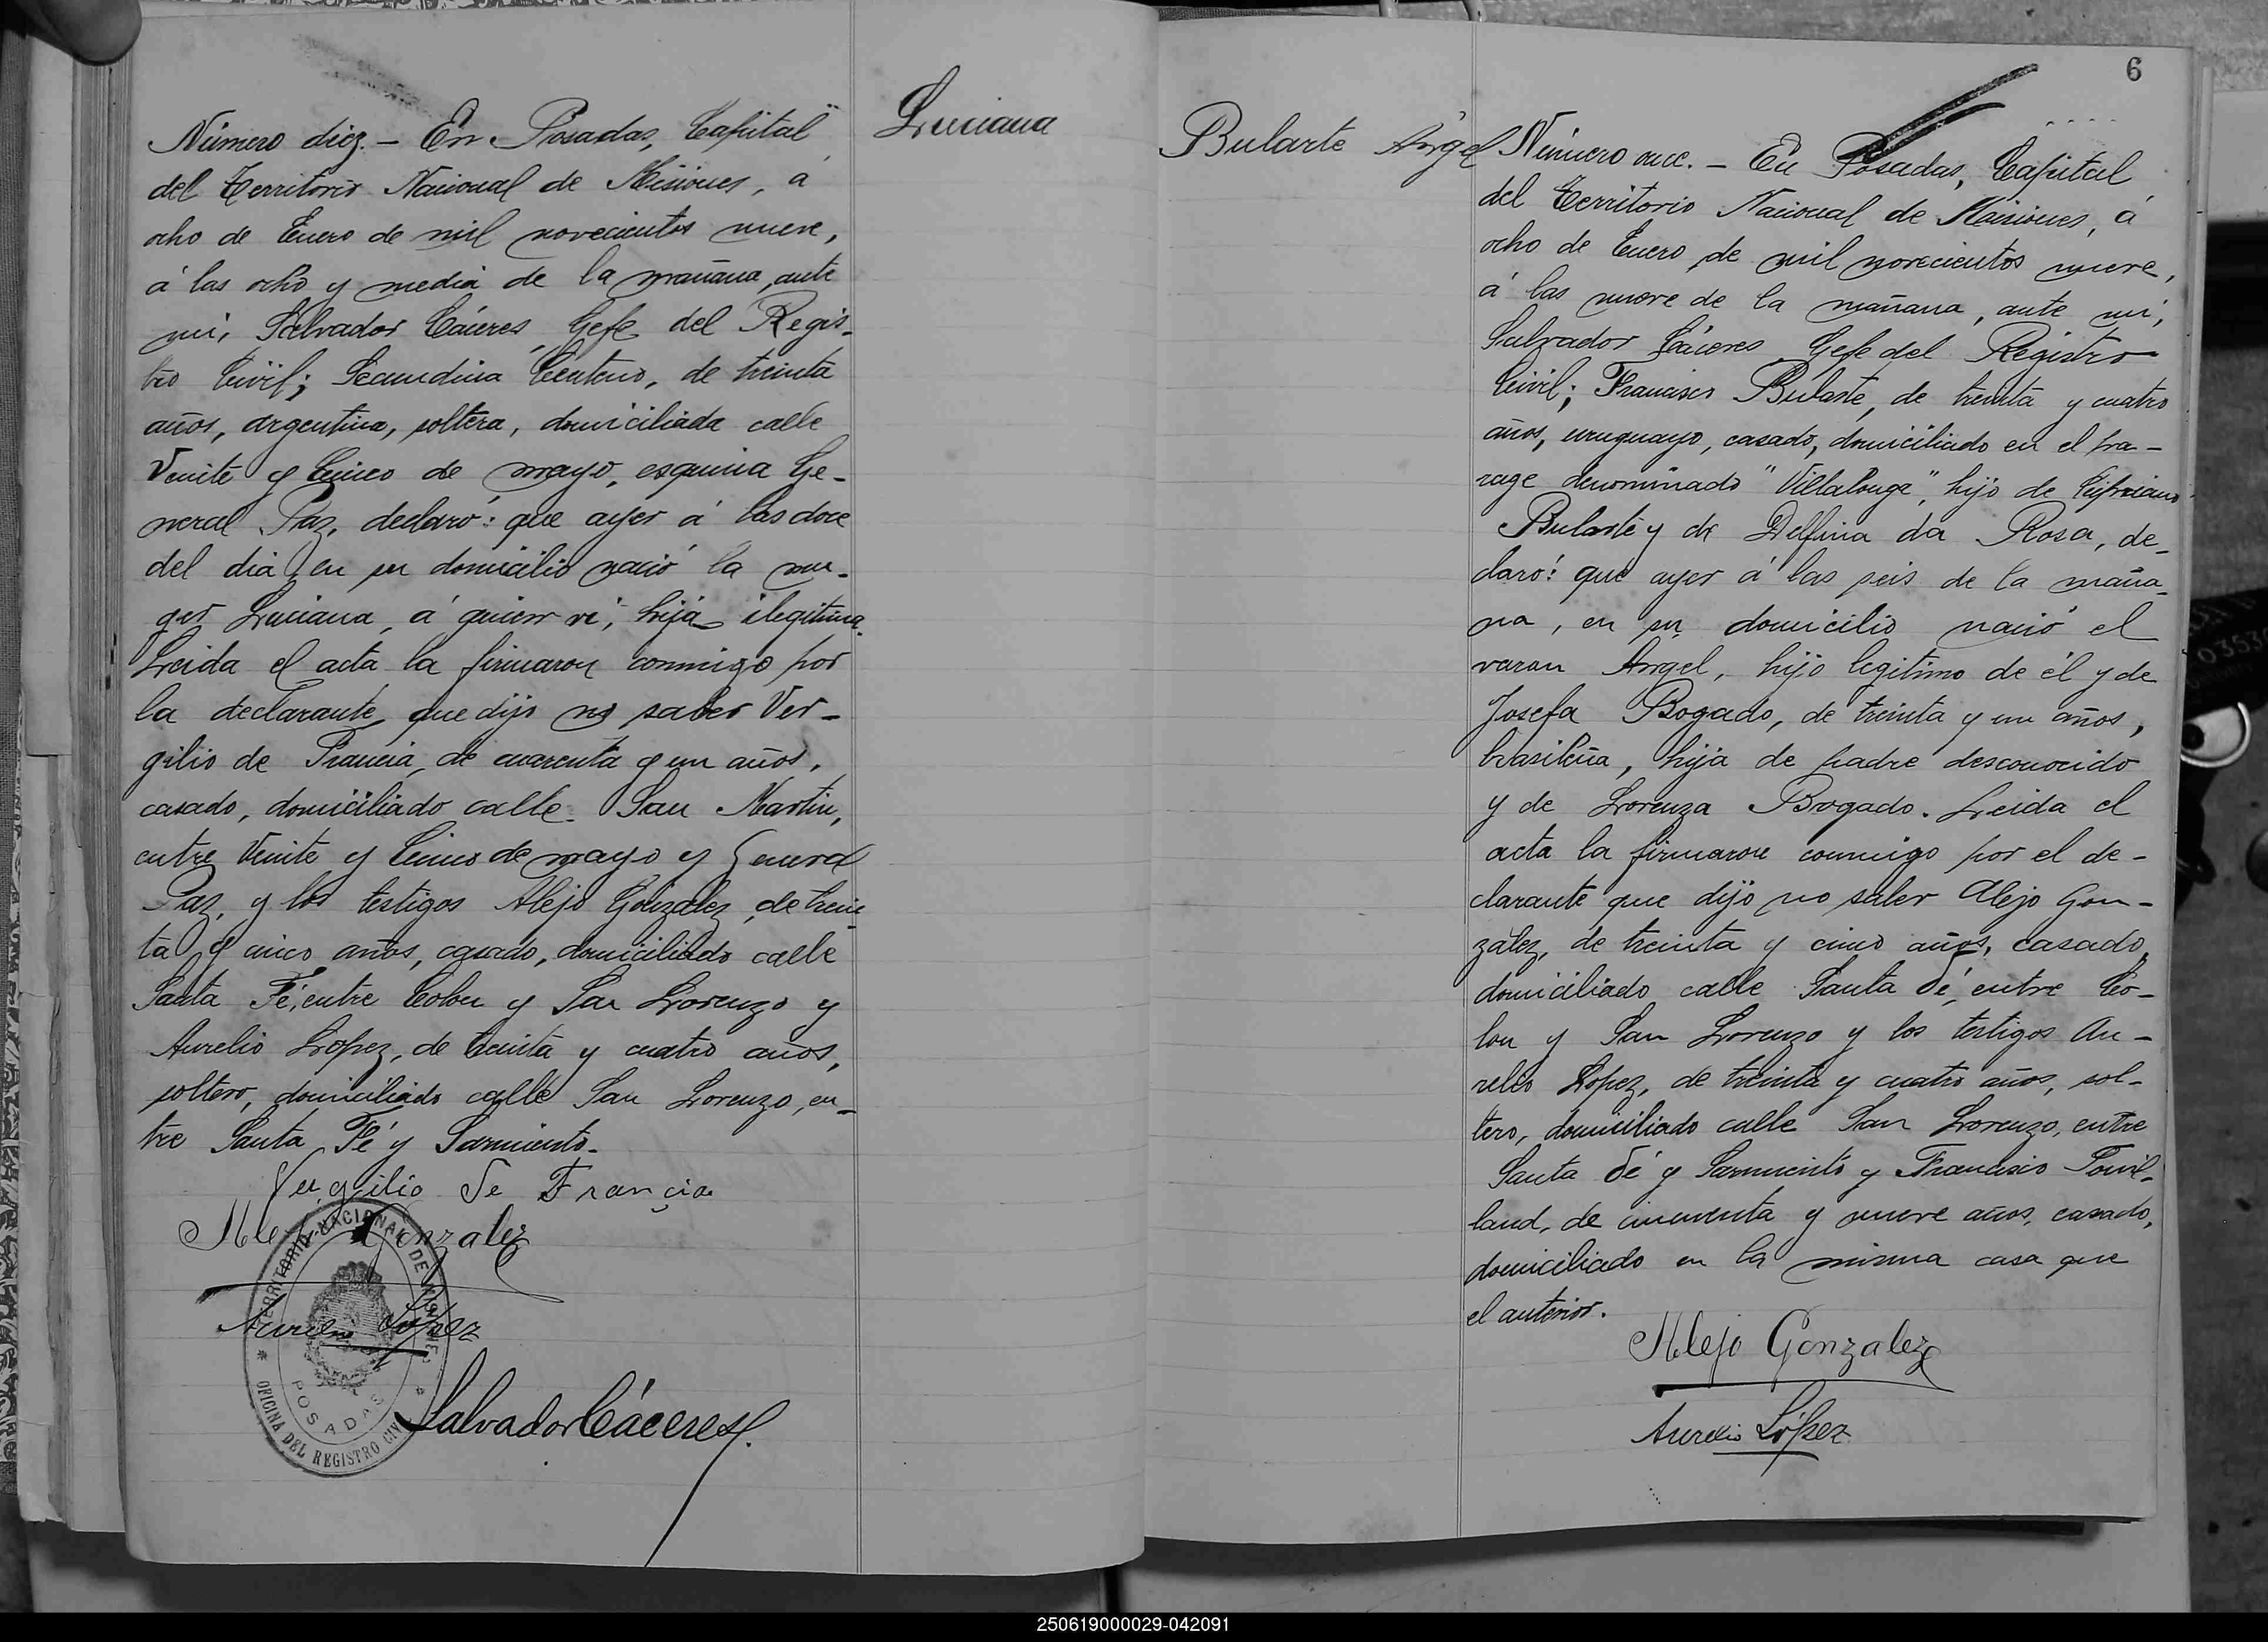 Número diez. - En Posadas, Capital
del Territorio Nacional de Misiones, a
ocho de Enero de mil novecientos nueve,
á las ocho y media de la mañana, ante
mí, Salvador Cáceres, Gefe del Regis-
tro Civil; Secundina Centeno, de treinta
años, argentina, soltera, domiciliada calle
Veinte y Cinco de mayo, esquina Ge-
neral Paz, declaró: que ayer á las doce
del dia, en su domicilio nació la mu-
ger Luciana, á quien ví, hija ilegitima.
Leida el acta la firmaron conmigo por
la declarante, que dijo no saber Ver-
gilio de Francia, de cuarenta y un años,
casado, domiciliado calle San Martin,
entre Veinte y Cinco de mayo y General
Paz, y los testigos Alejo González, de trein-
ta y cinco años, casado, domiciliado calle
Santa Fé, entre Colon y San Lorenzo y
Aurelio Lopez, de treinta y cuatro años,
soltero, domiciliado calle San Lorenzo, en-
tre Santa Fé y Sarmiento.
Vergilio de França
Alejo Gonzalez
Aurelio López
Salvador Cáceres
TERRITORIO NACIONAL DE MISIONES
POSADAS
OFICINA DEL REGISTRO CIVIL
Luciana
6
Bularte Angel
Número once. - En Posadas, Capital
del Territorio Nacional de Misiones, á
ocho de Enero de mil novecientos nueve,
á las nueve de la mañana, ante mí,
Salvador Cáceres, Gefe del Registro
Civil; Francisco Bularte, de treinta y cuatro
años, uruguayo, casado, domiciliado en el pa-
rage denominado "Villalonga", hijo de Cipriano
Bularte y de Delfina da Rosa, de-
claró: que ayer á las seis de la maña-
na, en su domicilio nació el
varon Angel, hijo legitimo de él y de
Josefa Bogado, de treinta y un años,
brasileña, hija de padre desconocido
y de Lorenza Bogado. Leida el
acta la firmaron conmigo por el de-
clarante que dijo no saber Alejo Gon-
zález, de treinta y cinco años, casado,
domiciliado calle Santa Fé, entre Co-
lon y San Lorenzo y los testigos Au-
relio Lopez, de treinta y cuatro años, sol-
tero, domiciliado calle San Lorenzo, entre
Santa Fé y Sarmiento y Francisco
land, de cincuenta y nueve años, casado,
domiciliado en la misma casa que
el anterior.
Alejo Gonzalez
Aurelio López
250619000029-042091